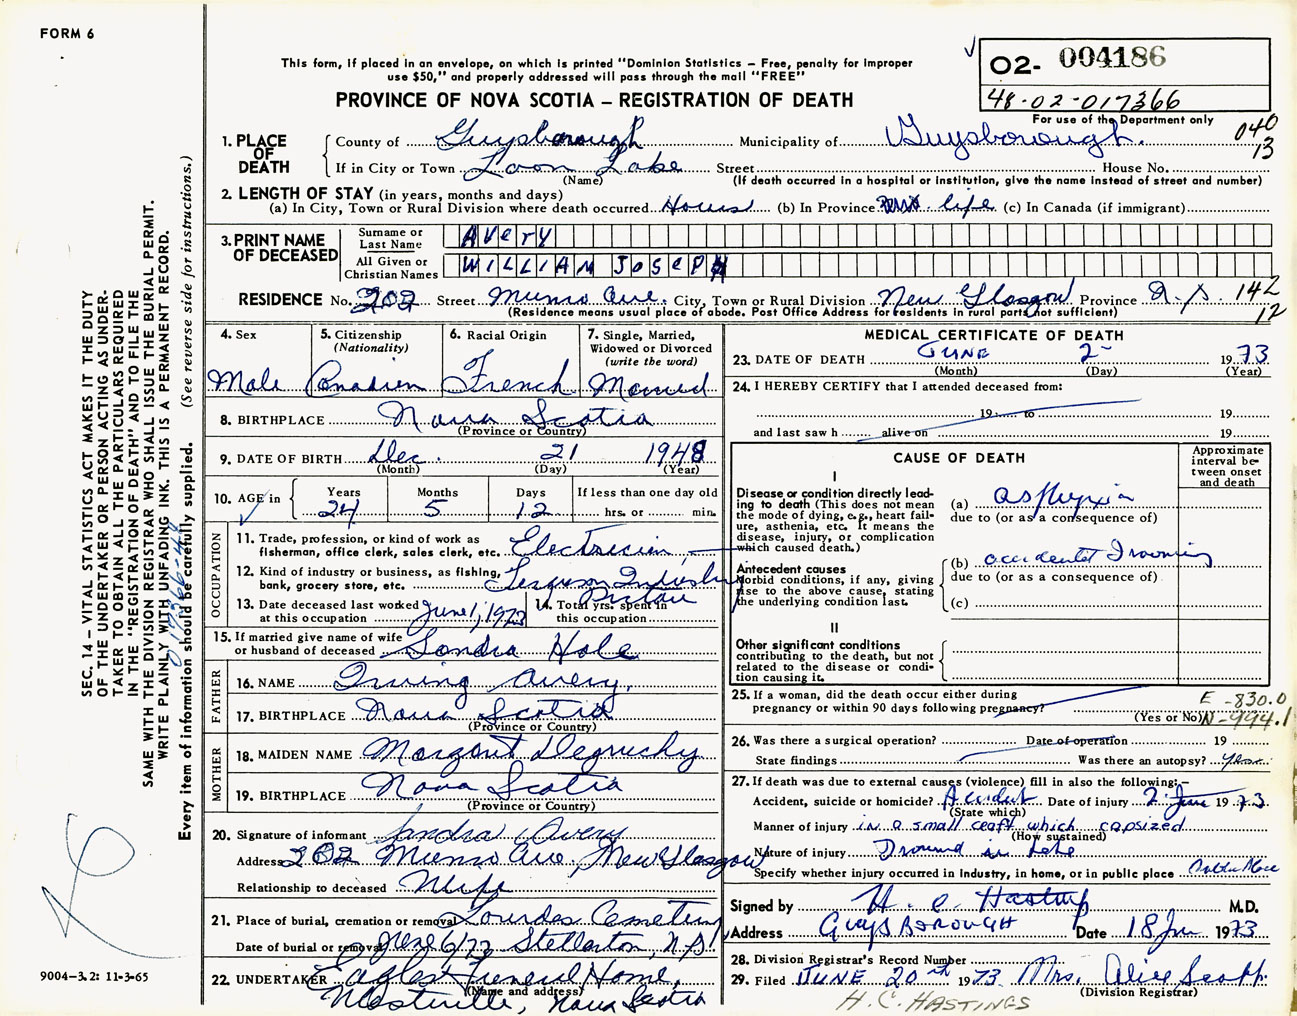 FORM 6
This form, if placed in an envelope, on which is printed "Dominion Statistics – Free, penalty for improper
use $50," and properly addressed will pass through the mail "FREE"
PROVINCE OF NOVA SCOTIA – REGISTRATION OF DEATH
02- 004186
48-02-017366
For use of the Department only
040
13
1. PLACE OF DEATH
County of Guysborough Municipality of Guysborough.
If in City or Town Loon Lake Street House No.
(Name) (If death occurred in a hospital or institution, give the name instead of street and number)
2. LENGTH OF STAY (in years, months and days)
(a) In City, Town or Rural Division where death occurred Hours (b) In Province life (c) In Canada (if immigrant)
3. PRINT NAME OF DECEASED
Surname or Last Name AVERY
All Given or Christian Names WILLIAM JOSEPH
RESIDENCE No. 202 Street Munro Ave. City, Town or Rural Division New Glasgow Province N.S 142
12
(Residence means usual place of abode. Post Office Address for residents in rural parts not sufficient)
4. Sex Male
5. Citizenship (Nationality) Canadien
6. Racial Origin French
7. Single, Married, Widowed or Divorced (write the word) Married
8. BIRTHPLACE Nova Scotia
(Province or Country)
9. DATE OF BIRTH Dec. 21 1948
(Month) (Day) (Year)
10. AGE in Years 24 Months 5 Days 12 If less than one day old hrs. or min.
OCCUPATION
11. Trade, profession, or kind of work as fisherman, office clerk, sales clerk, etc. Electricien
12. Kind of industry or business, as fishing, bank, grocery store, etc. Ferguson Industry
Pictou
13. Date deceased last worked at this occupation June 1, 1973
14. Total yrs. spent in this occupation
15. If married give name of wife or husband of deceased Sandra Hale
FATHER
16. NAME Irving Avery.
17. BIRTHPLACE Nova Scotia
(Province or Country)
MOTHER
18. MAIDEN NAME Margaret Degruchy
19. BIRTHPLACE Nova Scotia
(Province or Country)
20. Signature of informant Sandra Avery
Address 202 Munro Ave, New Glasgow
Relationship to deceased Wife
21. Place of burial, cremation or removal Lourdes Cemetery
Date of burial or removal June 6/73 Stellarton, N.S.
22. UNDERTAKER Eagles Funeral Home,
(Name and address)
Westville, Nova Scotia
MEDICAL CERTIFICATE OF DEATH
23. DATE OF DEATH JUNE 2 1973
(Month) (Day) (Year)
24. I HEREBY CERTIFY that I attended deceased from:
19 to 19
and last saw h alive on 19
CAUSE OF DEATH
Approximate interval between onset and death
I
Disease or condition directly leading to death (This does not mean the mode of dying, e.g., heart failure, asthenia, etc. It means the disease, injury, or complication which caused death.)
(a) asphyxia
due to (or as a consequence of)
Antecedent causes
Morbid conditions, if any, giving rise to the above cause, stating the underlying condition last.
(b) accidental Drowning
due to (or as a consequence of)
(c)
II
Other significant conditions
contributing to the death, but not related to the disease or condition causing it.
25. If a woman, did the death occur either during pregnancy or within 90 days following pregnancy?
(Yes or No)
E-830.0
N-994.1
26. Was there a surgical operation? Date of operation 19
State findings Was there an autopsy?
27. If death was due to external causes (violence) fill in also the following:–
Accident, suicide or homicide? Accident Date of injury 2 June 1973.
(State which)
Manner of injury in a small craft which capsized
(How sustained)
Nature of injury Drowned in Lake
Specify whether injury occurred in industry, in home, or in public place
Signed by H. C. Hastings M.D.
Address GUYSBOROUGH Date 18 Jun 1973
28. Division Registrar's Record Number
29. Filed JUNE 20th 1973 Mrs. Alice Scott.
(Division Registrar)
H.C. HASTINGS
SEC. 14 – VITAL STATISTICS ACT MAKES IT THE DUTY
OF THE UNDERTAKER OR PERSON ACTING AS UNDER-
TAKER TO OBTAIN ALL THE PARTICULARS REQUIRED
IN THE "REGISTRATION OF DEATH" AND TO FILE THE
SAME WITH THE DIVISION REGISTRAR WHO SHALL ISSUE THE BURIAL PERMIT.
WRITE PLAINLY WITH UNFADING INK. THIS IS A PERMANENT RECORD.
Every item of information should be carefully supplied. (See reverse side for instructions.)
017366-48
9004-3.2: 11-3-65